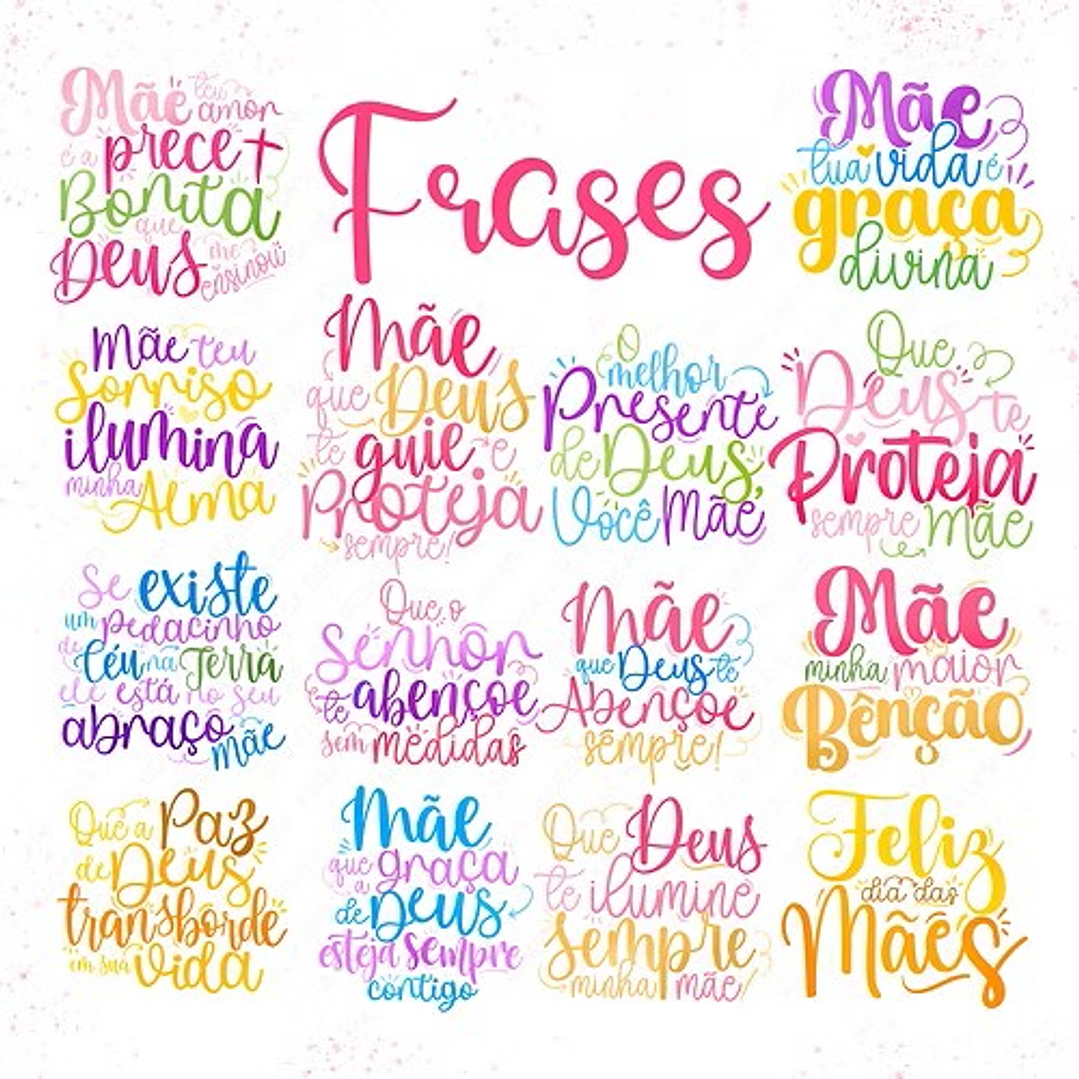 Mãe teu
amor
é a prece
Bonita
que
Deus me
ensinou
Frases
Mãe
tua vida é
graça
divina
Mãe teu
Sorriso
ilumina
minha Alma
Mãe
que Deus
te guie e
Proteja
sempre!
O
melhor
Presente
de Deus,
Você Mãe
Que
Deus te
Proteja
sempre Mãe
Se existe
um pedacinho
de Céu na Terra
ele está no seu
abraço
mãe
Que o
Senhor
te abençoe
sem medidas
Mãe
que Deus te
Abençoe
sempre!
Mãe
minha maior
Bênção
Que a Paz
de Deus
transborde
em sua vida
Mãe
que a graça
de Deus
esteja sempre
contigo
Que Deus
te ilumine
Sempre
minha mãe!
Feliz
dia das
Mães